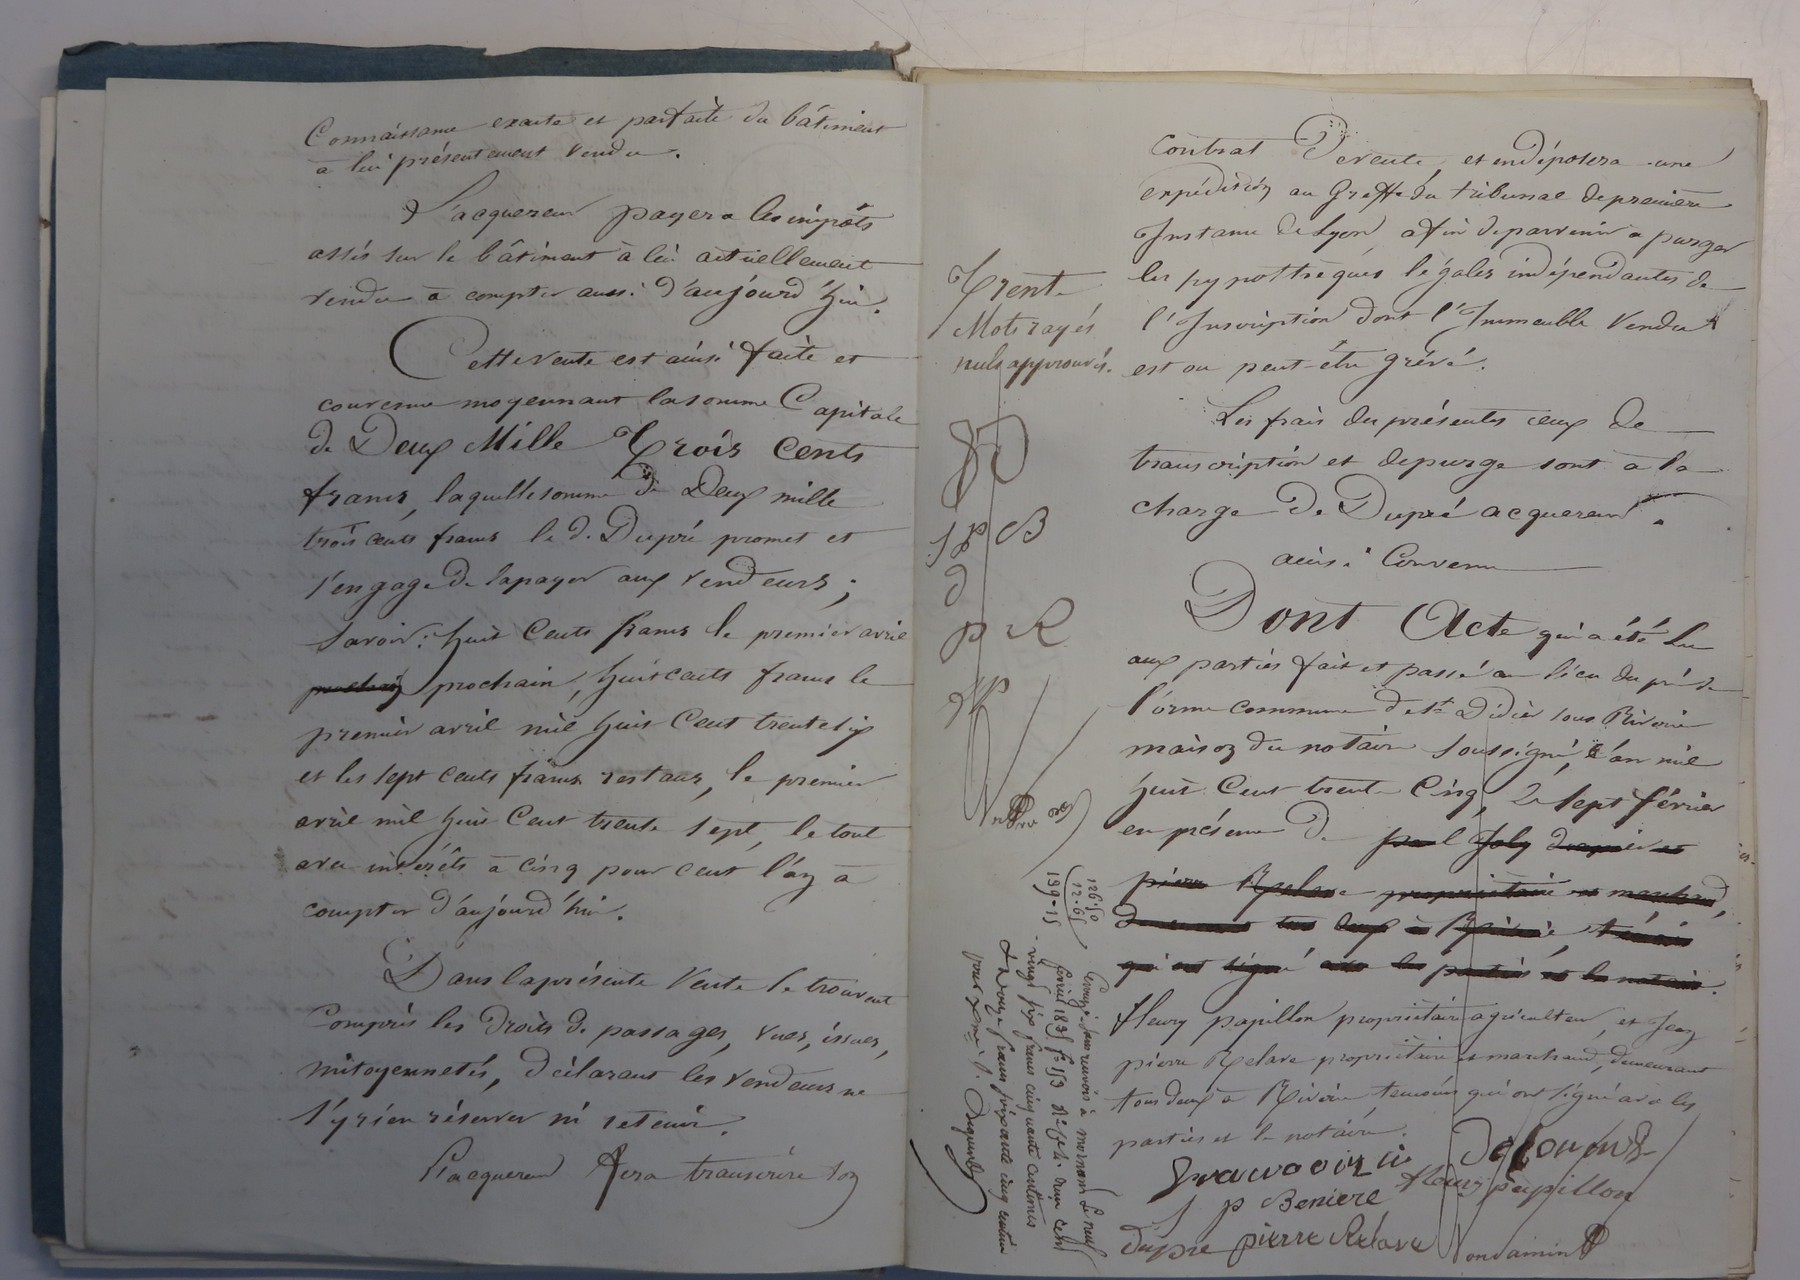 Connaissance exacte et parfaite du bâtiment
à lui présentement vendu.
L'acquereur payera les impôts
assis sur le bâtiment à lui actuellement
vendu à compter aussi d'aujourd'hui.
Cette vente est ainsi faite et
convenue moyennant la somme Capitale
de Deux Mille Trois Cents
francs, laquelle somme de Deux mille
trois cents francs le d. Dupré promet et
s'engage de la payer aux vendeurs;
Savoir: huit Cents francs le premier avril
prochain, huit cents francs le
premier avril mil huit Cent trente six
et les sept cents francs restans, le premier
avril mil huit Cent trente sept, le tout
avec intérêts à cinq pour cent l'an à
compter d'aujourd'hui.
Dans la présente Vente se trouvent
Compris les Droits de passages, vues, issues,
mitoyennetés, déclarant les vendeurs ne
s'y rien réserver ni retenir.
L'acquereur fera transcrire son
contrat De vente, et en déposera une
expédition au Greffe du tribunal de première
Instance de Lyon afin de parvenir a purger
les hypothèques légales indépendantes de
l'Inscription dont l'Immeuble vendu
est ou peut-être grévé.
Les frais des présentes ceux de
transcription et de purge sont à la
charge De Dupré acquereur.
ainsi Convenu
Dont Acte qui a été Lu
aux parties fait et passé au lieu du pré de
l'orme commune de St Didier sous Riverie
maison du notaire soussigné, l'an mil
huit Cent trente Cinq, Le sept février
en présence De paul Joly drapier et
pierre Relave propriétaire et marchand,
demeurant tous deux à Riverie, témoins
qui ont signé avec les parties et le notaire.
fleury papillon propriétaire agriculteur, et Jean
pierre Relave propriétaire et marchand, demeurant
tous deux à Riverie, temoins qui ont signé avec les
parties et le notaire.
fleury papillon
J p Beniere
dupre pierre Relave
Trente
Mots rayés
nuls approuvés.
J P B
D
P R
f P
126.50
12.65
139-15
Enregé sans renvois à mornant Le neuf
février 1835 fo 153
vingt six francs cinquante centimes
& Douze francs soixante cinq centimes
pour Xme